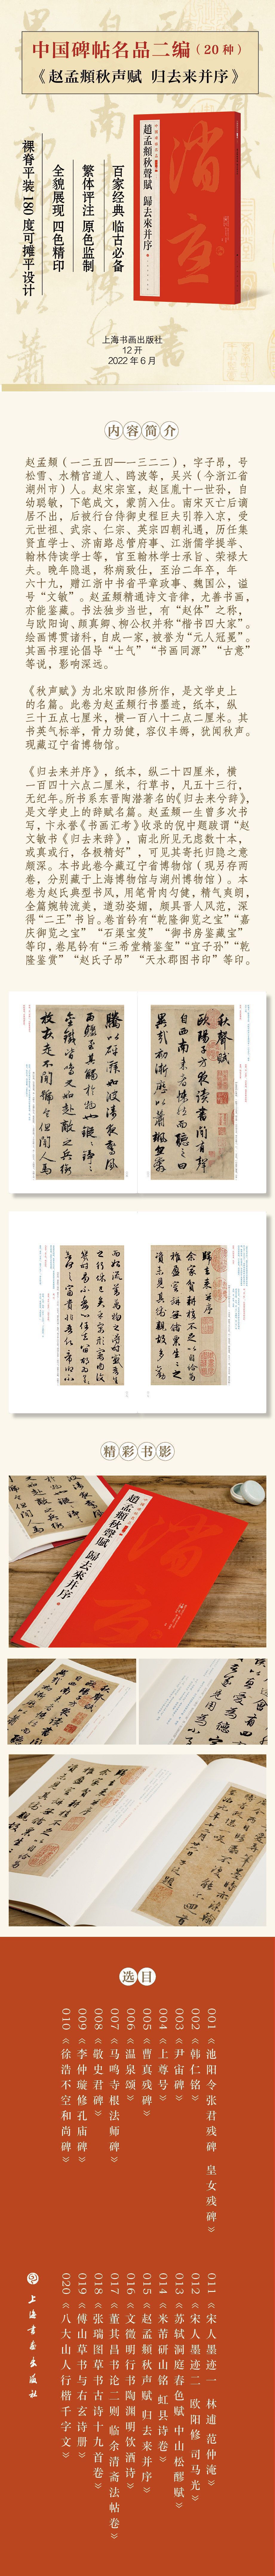 中国碑帖名品二编（20种）
《赵孟頫秋声赋 归去来并序》
百家经典 临古必备
繁体评注 原色监制
全貌展现 四色精印
裸脊平装 180度可摊平设计
中国碑帖名品二编
趙孟頫秋聲賦 歸去來并序
上海书画出版社
12开
2022年6月
内容简介
赵孟頫（一二五四—一三二二），字子昂，号
松雪、水精宫道人、鸥波等，吴兴（今浙江省
湖州市）人。赵宋宗室，赵匡胤十一世孙，自
幼聪敏，下笔成文，蒙荫入仕。南宋灭亡后谪
居不出，后被行台侍御史程巨夫引荐入京，受
元世祖、武宗、仁宗、英宗四朝礼遇，历任集
贤直学士、济南路总管府事、江浙儒学提举、
翰林侍读学士等，官至翰林学士承旨、荣禄大
夫。晚年隐退，称病致仕，至治二年卒，年
六十九，赠江浙中书省平章政事、魏国公，谥
号“文敏”。赵孟頫精通诗文音律，尤善书画，
亦能鉴藏。书法独步当世，有“赵体”之称，
与欧阳询、颜真卿、柳公权并称“楷书四大家”。
绘画博贯诸科，自成一家，被誉为“元人冠冕”。
其画书理论倡导“士气”“书画同源”“古意”
等说，影响深远。
《秋声赋》为北宋欧阳修所作，是文学史上
的名篇。此卷为赵孟頫行书墨迹，纸本，纵
三十五点七厘米，横一百八十二点二厘米。其
书英气标举，骨力劲健，容仪丰缛，犹闻秋声。
现藏辽宁省博物馆。
《归去来并序》，纸本，纵二十四厘米，横
一百四十六点二厘米，行草书，凡五十三行，
无纪年。所书系东晋陶潜著名的《归去来兮辞》，
是文学史上的辞赋名篇。赵孟頫一生曾多次书
写，卞永誉《书画汇考》收录的倪中题跋谓“赵
文敏书《归去来辞》，南北所见无虑数十本，
或真或行，各极精好”，可见其寄托归隐之意
颇深。本书此卷今藏辽宁省博物馆（现另存两
卷，分别藏于上海博物馆与湖州博物馆）。本
卷为赵氏典型书风，用笔骨肉匀健，精气爽朗，
全篇婉转流美，道劲姿媚，颇具晋人风范，深
得“二王”书旨。卷首钤有“乾隆御览之宝”“嘉
庆御览之宝”“石渠宝笈”“御书房鉴藏宝”
等印，卷尾钤有“三希堂精鉴玺”“宜子孙”“乾
隆鉴赏”“赵氏子昂”“天水郡图书印”等印。
秋聲賦
歐陽子方夜讀書聞有聲
自西南来者悚然而聽之曰
異哉初淅瀝以蕭颯忽奔
騰以砰湃如波濤夜驚風
雨驟至其觸於物也鏦鏦錚錚
金鐵皆鳴又如赴敵之兵銜
枚疾走不聞號令但聞人馬
歸去来并序
余家貧耕植不足以自給幼
稚盈室缾無儲粟生生之
資未見其術親故多勸
精彩书影
趙孟頫秋聲賦 歸去來并序
选目
001《池阳令张君残碑 皇女残碑》
002《韩仁铭》
003《尹宙碑》
004《上尊号》
005《曹真残碑》
006《温泉颂》
007《马鸣寺根法师碑》
008《敬史君碑》
009《李仲璇修孔庙碑》
010《徐浩不空和尚碑》
011《宋人墨迹一 林逋 范仲淹》
012《宋人墨迹二 欧阳修 司马光》
013《苏轼洞庭春色赋 中山松醪赋》
014《米芾研山铭 虹县诗卷》
015《赵孟頫秋声赋 归去来并序》
016《文徵明行书陶渊明饮酒诗》
017《董其昌书论二则 临余清斋法帖卷》
018《张瑞图草书古诗十九首卷》
019《傅山草书与右玄诗册》
020《八大山人行楷千字文》
上海书画出版社